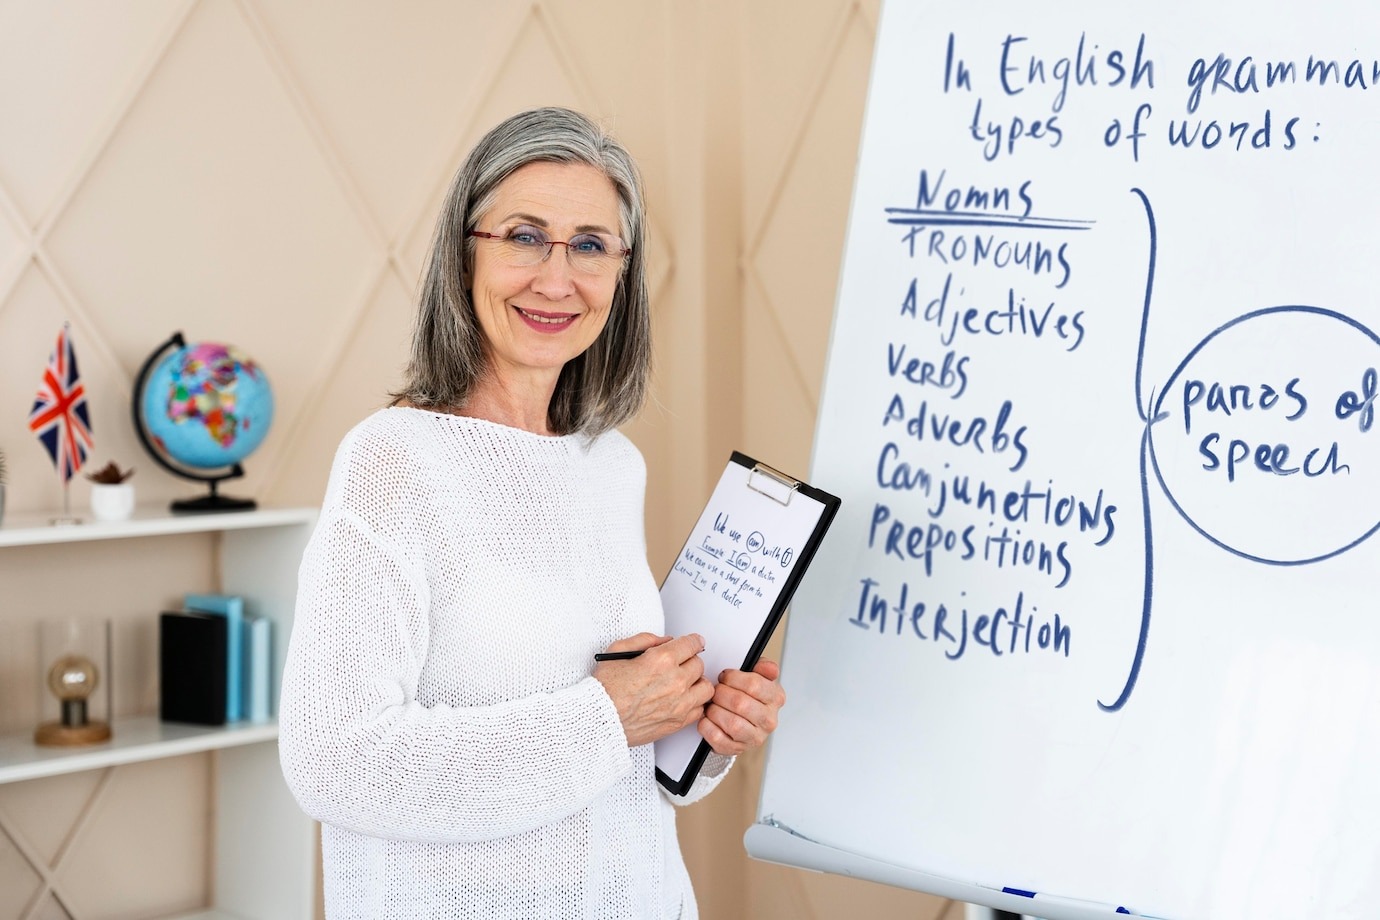 In English grammar
types of words:
Nomns
PRONOUNS
Adjectives
Verbs
Adverbs
Conjunctions
Prepositions
Interjection
parts of
speech
We use am with I
Example I am a doctor
We can use a short form too
I'm a doctor